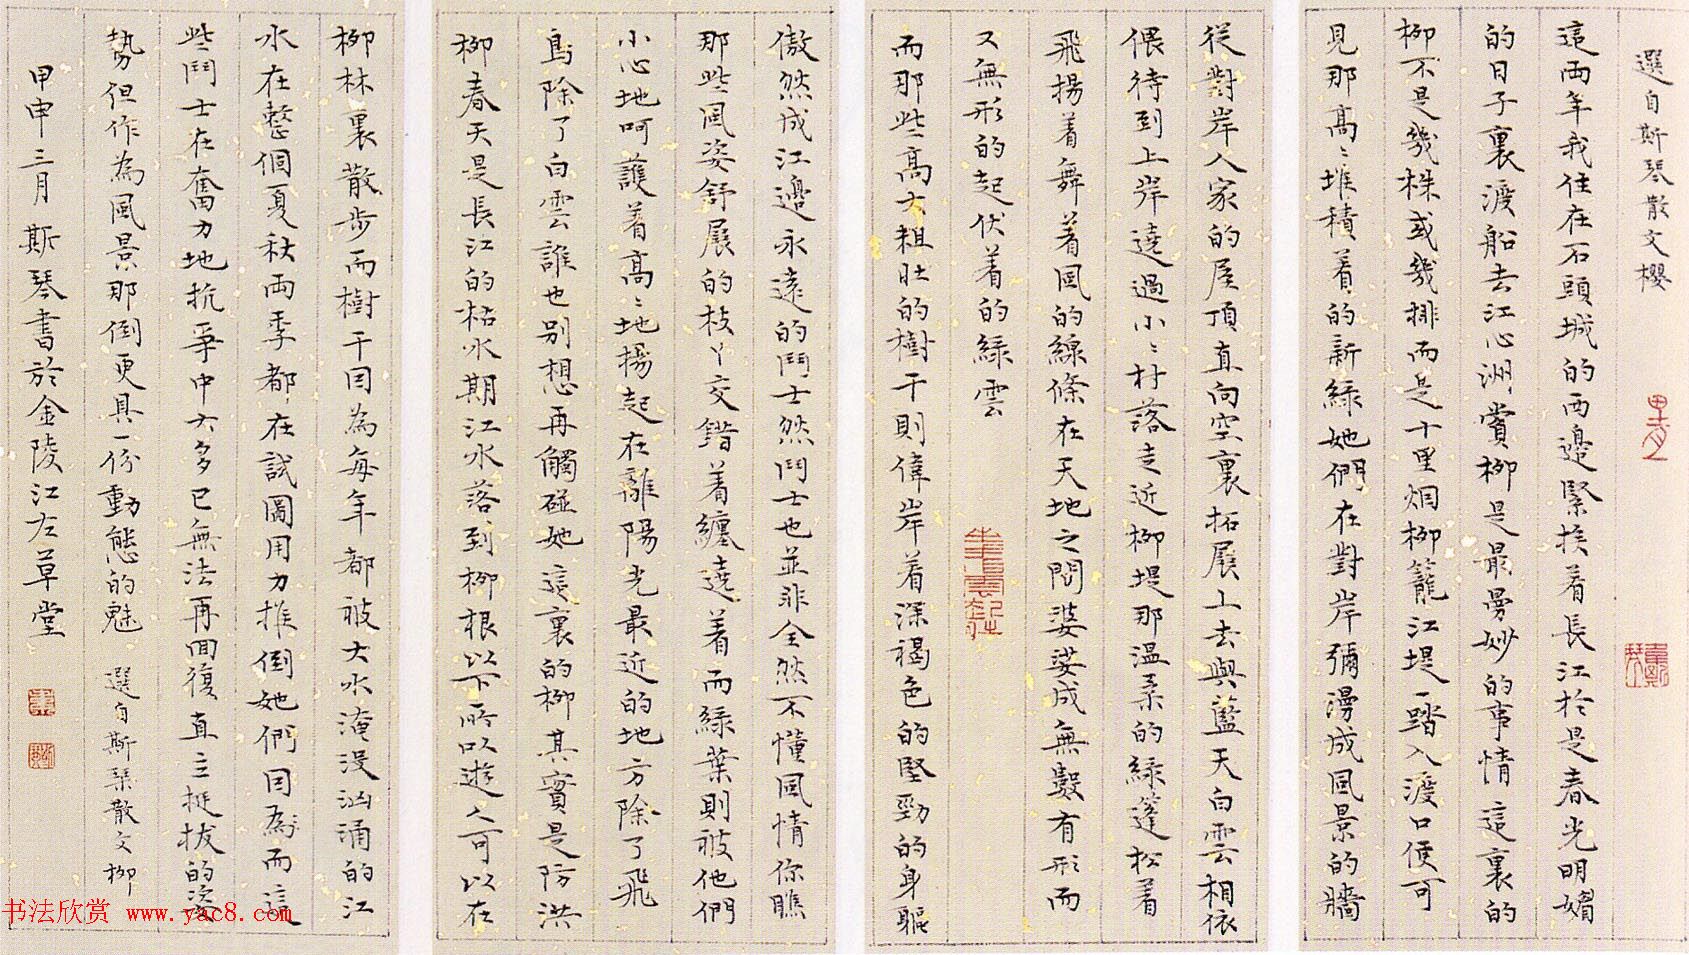 選自斯琴散文櫻
這兩年我住在石頭城的西邊緊挨着長江於是春光明媚
的日子裏渡船去江心洲賞柳是最曼妙的事情這裏的
柳不是幾株或幾排而是十里烟柳籠江堤一踏入渡口便可
見那高〻堆積着的新綠她們在對岸彌漫成風景的牆
從對岸人家的屋頂直向空裏拓展上去與藍天白雲相依
偎待到上岸遶過小〻村落走近柳堤那溫柔的綠蓬松着
飛揚着舞着風的線條在天地之間婆娑成無數有形而
又無形的起伏着的綠雲
而那些高大粗壯的樹干則偉岸着深褐色的堅勁的身軀
傲然成江邊永遠的鬥士然鬥士也並非全然不懂風情你瞧
那些風姿舒展的枝丫交錯着纏遶着而綠葉則被他們
小心地呵護着高〻地揚起在離陽光最近的地方除了飛
鳥除了白雲誰也別想再觸碰她這裏的柳其實是防洪
柳春天是長江的枯水期江水落到柳根以下所以遊人可以在
柳林裏散步而樹干因為每年都被大水淹没汹涌的江
水在整個夏秋兩季都在試圖用力推倒她們因為而這
些鬥士在奮力地抗爭中大多已無法再回復直立挺拔的姿
勢但作為風景那倒更具一份動態的魅 選自斯琴散文柳
甲申三月斯琴書於金陵江左草堂
书法欣赏 www.yac8.com